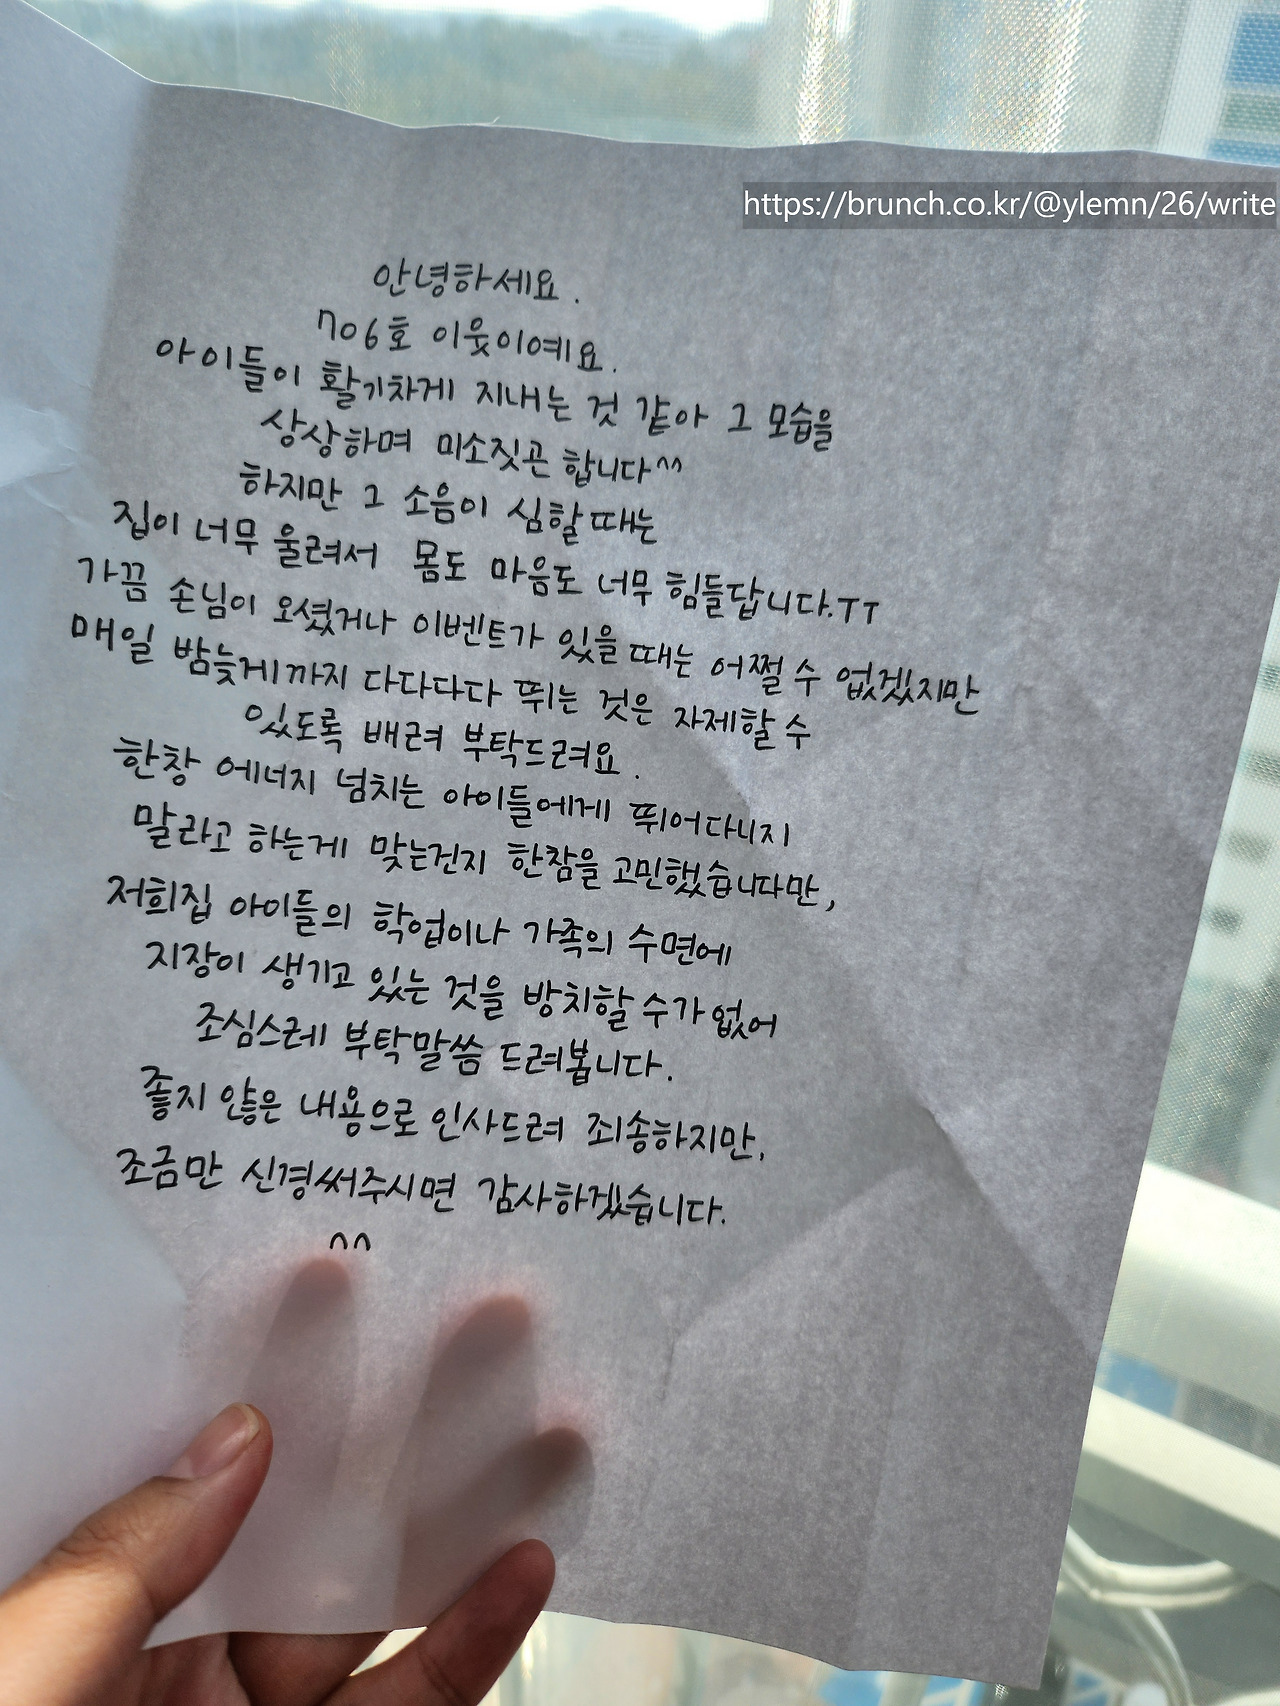 https://brunch.co.kr/@ylemn/26/write
안녕하세요.
706호 이웃이예요.
아이들이 활기차게 지내는 것 같아 그 모습을
상상하며 미소짓곤 합니다^^
하지만 그 소음이 심할때는
집이 너무 울려서 몸도 마음도 너무 힘들답니다.ㅜㅜ
가끔 손님이 오셨거나 이벤트가 있을때는 어쩔수 없겠지만
매일 밤늦게까지 다다다다 뛰는 것은 자제할 수
있도록 배려 부탁드려요.
한창 에너지 넘치는 아이들에게 뛰어다니지
말라고 하는게 맞는건지 한참을 고민했습니다만,
저희집 아이들의 학업이나 가족의 수면에
지장이 생기고 있는 것을 방치할 수가 없어
조심스레 부탁말씀 드려봅니다.
좋지 않은 내용으로 인사드려 죄송하지만,
조금만 신경써주시면 감사하겠습니다.
^^